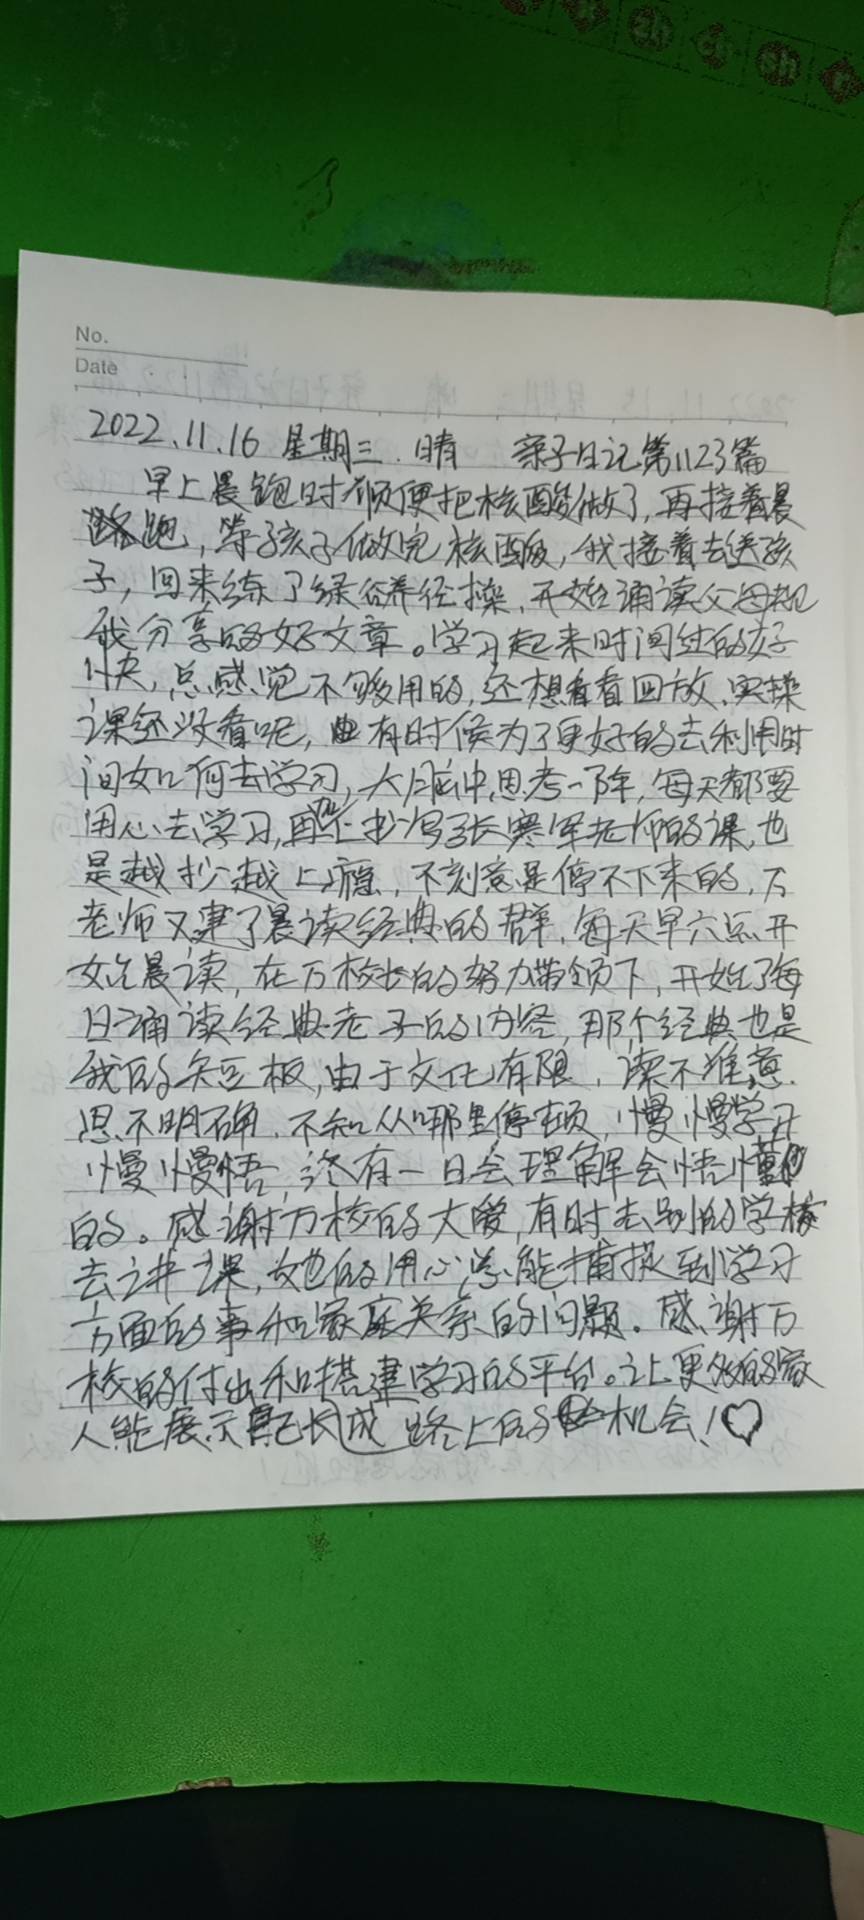 zh ch sh r
No.
Date
2022.11.16 星期三.晴 亲子日记第1123篇
早上晨跑时顺便把核酸做了,再接着晨
跑,等孩子做完核酸,我接着去送孩
子,回来练了经操,开始诵读父母规
我分享的好文章。学习起来时间过的好
快,总感觉不够用的,还想看看回放,实操
课还没看呢,有时候为了更好的去利用时
间如何去学习,大脑中思考一下,每天都要
用心去学习,再加上抄写张寒军老师的课,也
是越抄越上瘾,不刻意是停不下来的,万
老师又建了晨读经典的群,每天早六点开
始晨读,在万校长的努力带领下,开始了每
日诵读经典老子的内容,那个经典也是
我的矢豆板,由于文化有限,读不准,意
思不明确,不知从哪里停顿,慢慢学习
慢慢悟,终有一日会理解会悟懂
的。感谢万校的大爱,有时去别的学校
去讲课,她的用心总能捕捉到学习
方面的事和家庭关系的问题。感谢万
校的付出和搭建学习的平台。让更多的家
人能展示自己成长路上的机会!